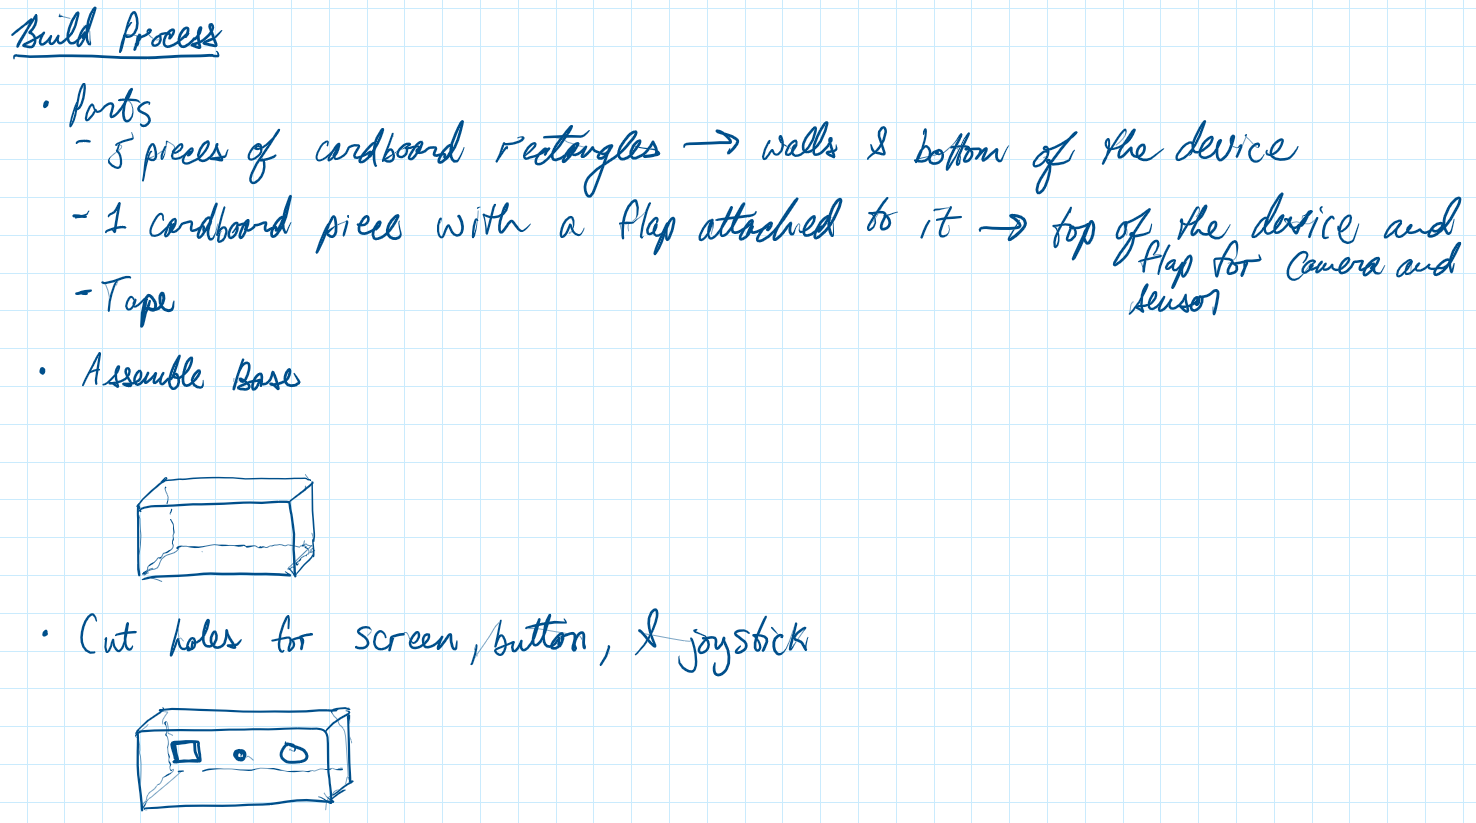 Build Process
• Parts
- 5 pieces of cardboard rectangles → walls & bottom of the device
- 1 cardboard piece with a flap attached to it → top of the device and
flap for camera and
sensor
- Tape
• Assemble Base
• Cut holes for screen, button, & joystick